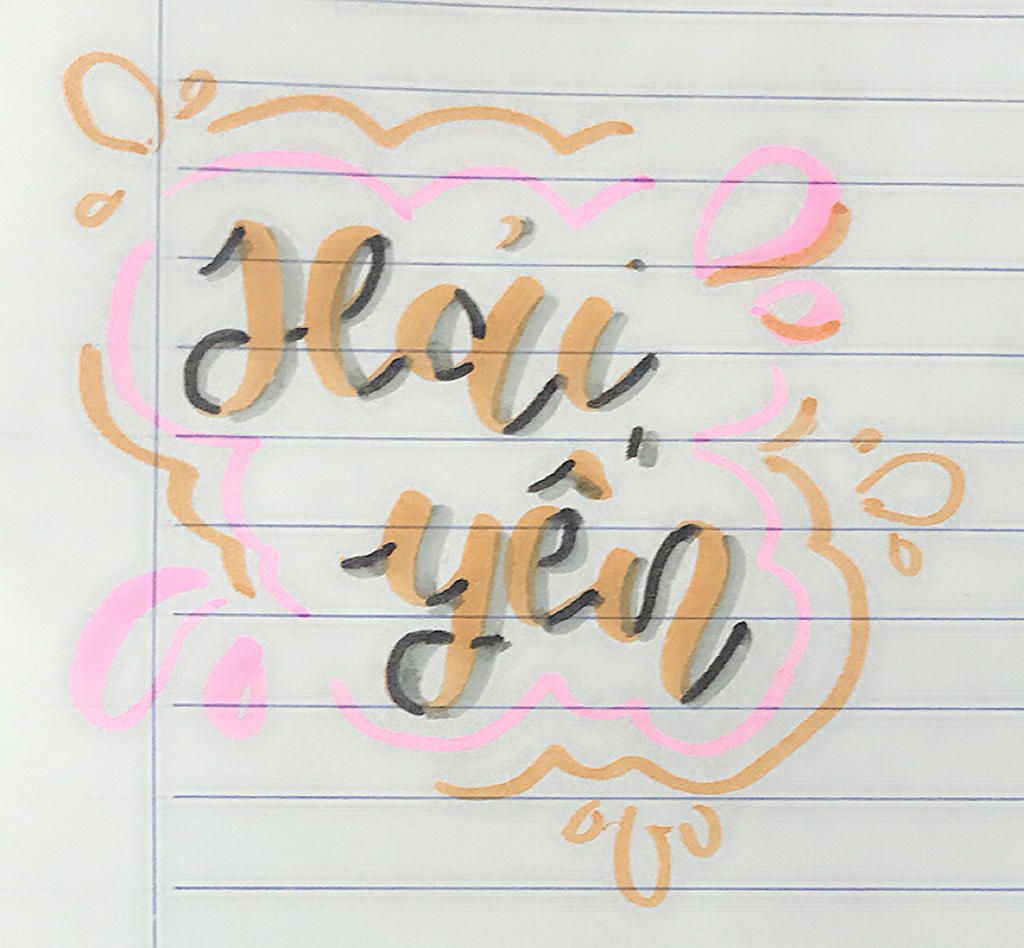 Hải
yến